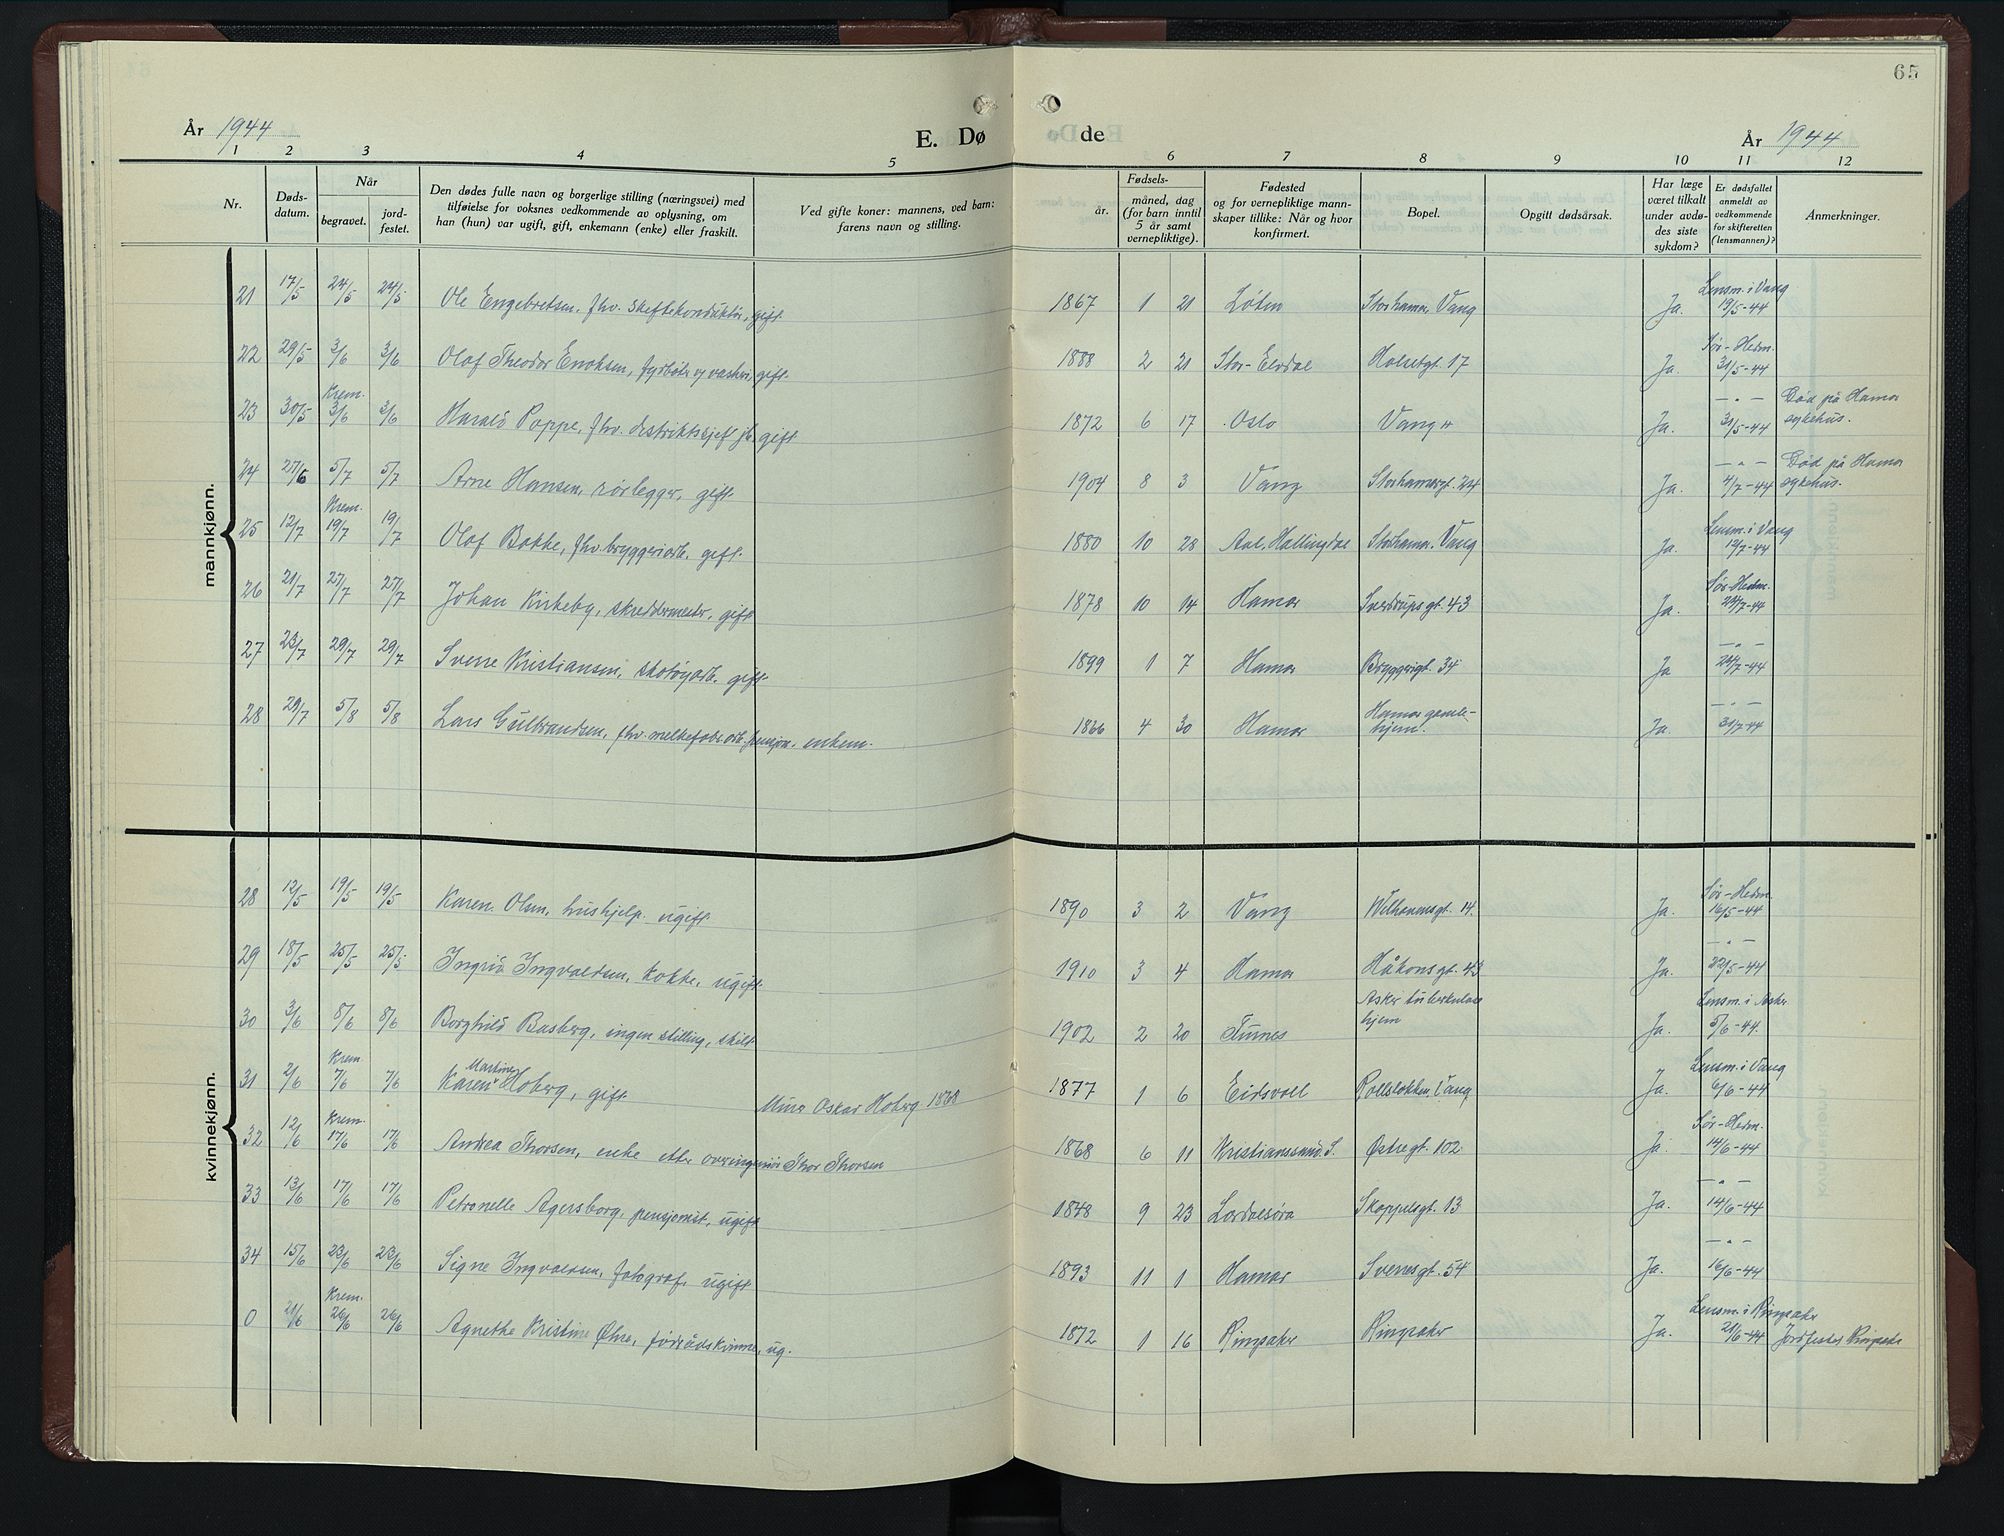 65
År 1944
E. Dø de
År 1944
1 2 3 4 5 6 7 8 9 10 11 12
Nr.
Døds-
datum.
Når
begravet.
jord-
festet.
Den dødes fulle navn og borgerlige stilling (næringsvei) med
tilføielse for voksnes vedkommende av oplysning, om
han (hun) var ugift, gift, enkemann (enke) eller fraskilt.
Ved gifte koner: mannens, ved barn:
farens navn og stilling.
Fødsels-
år.
måned, dag
(for barn inntil
5 år samt
vernepliktige).
Fødested
og for vernepliktige mann-
skaper tillike: Når og hvor
konfirmert.
Bopel.
Opgitt dødsårsak.
Har læge
været tilkalt
under avdø-
des siste
sykdom?
Er dødsfallet
anmeldt av
vedkommende
for skifteretten
(lensmannen)?
Anmerkninger.
mannkjønn.
21 17/5 24/5 24/5 Ole Engebretsen, fhv. skiftekonduktør, gift. 1867 1 21 Løten Storhamar, Vang Ja. Lensm. i Vang 19/5-44
22 29/5 3/6 3/6 Olaf Theodor Enoksen, fyrbøter og vaskeri, gift. 1888 2 21 Stor-Elvdal Holsetgt. 17 Ja. Sør-Hedm. 31/5-44
23 30/5 Krem. 3/6 3/6 Harald Poppe, fhv. distriktssjef jb. gift 1872 6 17 Oslo Vang Ja. -"- 31/5-44 Død på Hamar sykehus.
24 27/6 5/7 5/7 Arne Hansen, rørlegger, gift. 1904 8 3 Vang Storhamargt. 24 Ja. -"- 4/7-44 Død på Hamar sykehus.
25 12/7 Krem. 19/7 19/7 Olaf Bakke, fhv. bryggeriarb. gift. 1880 10 28 Aal, Hallingdal Storhamar, Vang Ja. Lensm. i Vang 12/7-44
26 21/7 27/7 27/7 Johan Kirkeby, skreddermester, gift. 1878 10 14 Hamar Sverdrupsgt. 43 Ja. Sør-Hedm. 24/7-44
27 23/7 29/7 29/7 Sverre Kristiansen, skotøyarb. gift. 1899 1 7 Hamar Bryggerigt. 34 Ja -"- 24/7-44
28 29/7 5/8 5/8 Lars Gulbrandsen, fhv. melkefabr.arb. pensjon. enkem. 1866 4 30 Hamar Hamar gamle-hjem. Ja. -"- 31/7-44
kvinnekjønn.
28 12/5 19/5 19/5 Karen Olsen, hushjelp. ugift. 1890 3 2 Vang Welhavensgt. 14. Ja. Sør-Hedm. 16/5-44
29 18/5 25/5 25/5 Ingrid Ingvaldsen, kokke, ugift. 1910 3 4 Hamar Håkonsgt. 43 Ja. -"- 22/5-44
30 3/6 8/6 8/6 Borghild Basberg, ingen stilling, skilt 1902 2 20 Furnes Asker tuberkulose hjem Ja. Lensm. i Asker 5/6-44.
31 2/6 Krem. 7/6 7/6 Karen Martine Hoberg, gift. Murer Oskar Hoberg 1868 1877 1 6 Eidsvoll Rollsløkken, Vang Ja. Lensm. i Vang 6/6-44
32 12/6 Krem. 17/6 17/6 Andrea Thorsen, enke etter overingeniør Thor Thorsen 1868 6 11 Kristianssund. S. Østregt. 102. Ja. Sør-Hedm. 14/6-44
33 13/6 17/6 17/6 Petronelle Agersborg, pensjonist, ugift 1848 9 23 Lærdalsøra Skappelsgt. 13 Ja. -"- 14/6-44
34 15/6 23/6 23/6 Signe Ingvaldsen, fotograf, ugift 1893 11 1 Hamar Sverresgt. 54 Ja. -"- 16/6-44
0 21/6 Krem. 26/6 26/6 Agnethe Kristine Øhre, føderådskvinne, ug. 1872 1 16 Ringsaker Ringsaker Ja. Lensm. i Ringsaker 21/6-44 Jordfestet Ringsaker